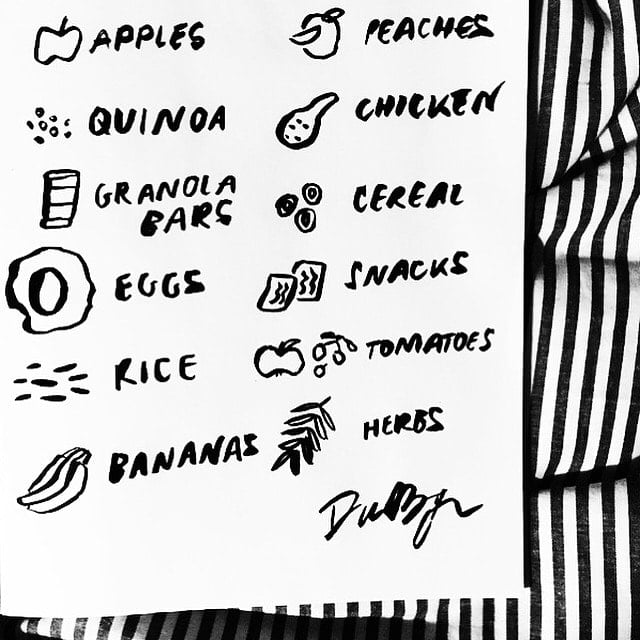 APPLES
QUINOA
GRANOLA
BARS
EGGS
RICE
BANANAS
PEACHES
CHICKEN
CEREAL
SNACKS
TOMATOES
HERBS